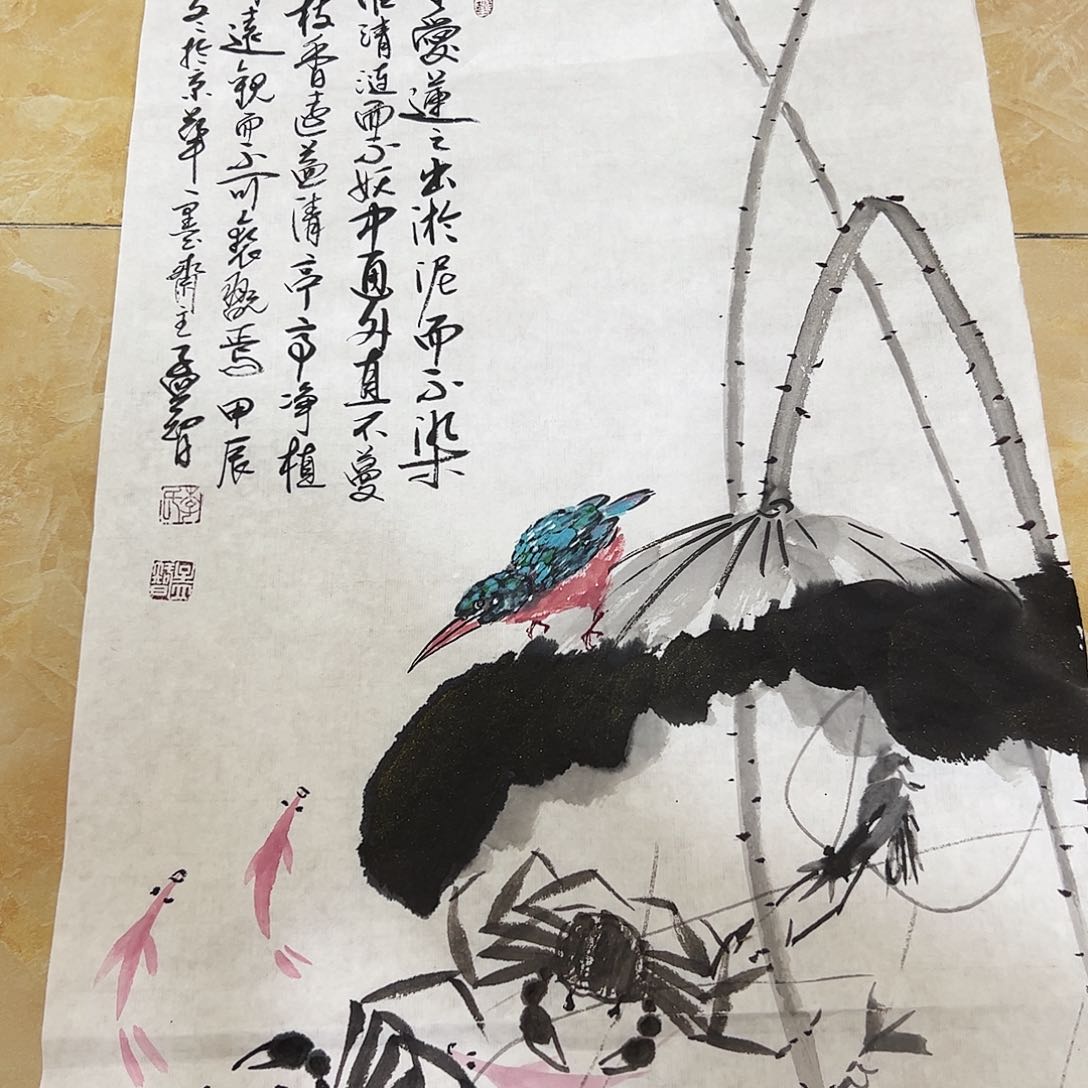 愛蓮之出淤泥而不染
清漣而不妖中通外直不蔓
枝香遠益清亭亭净植
遠觀而不可褻翫焉甲辰
於京華墨齋主孟智